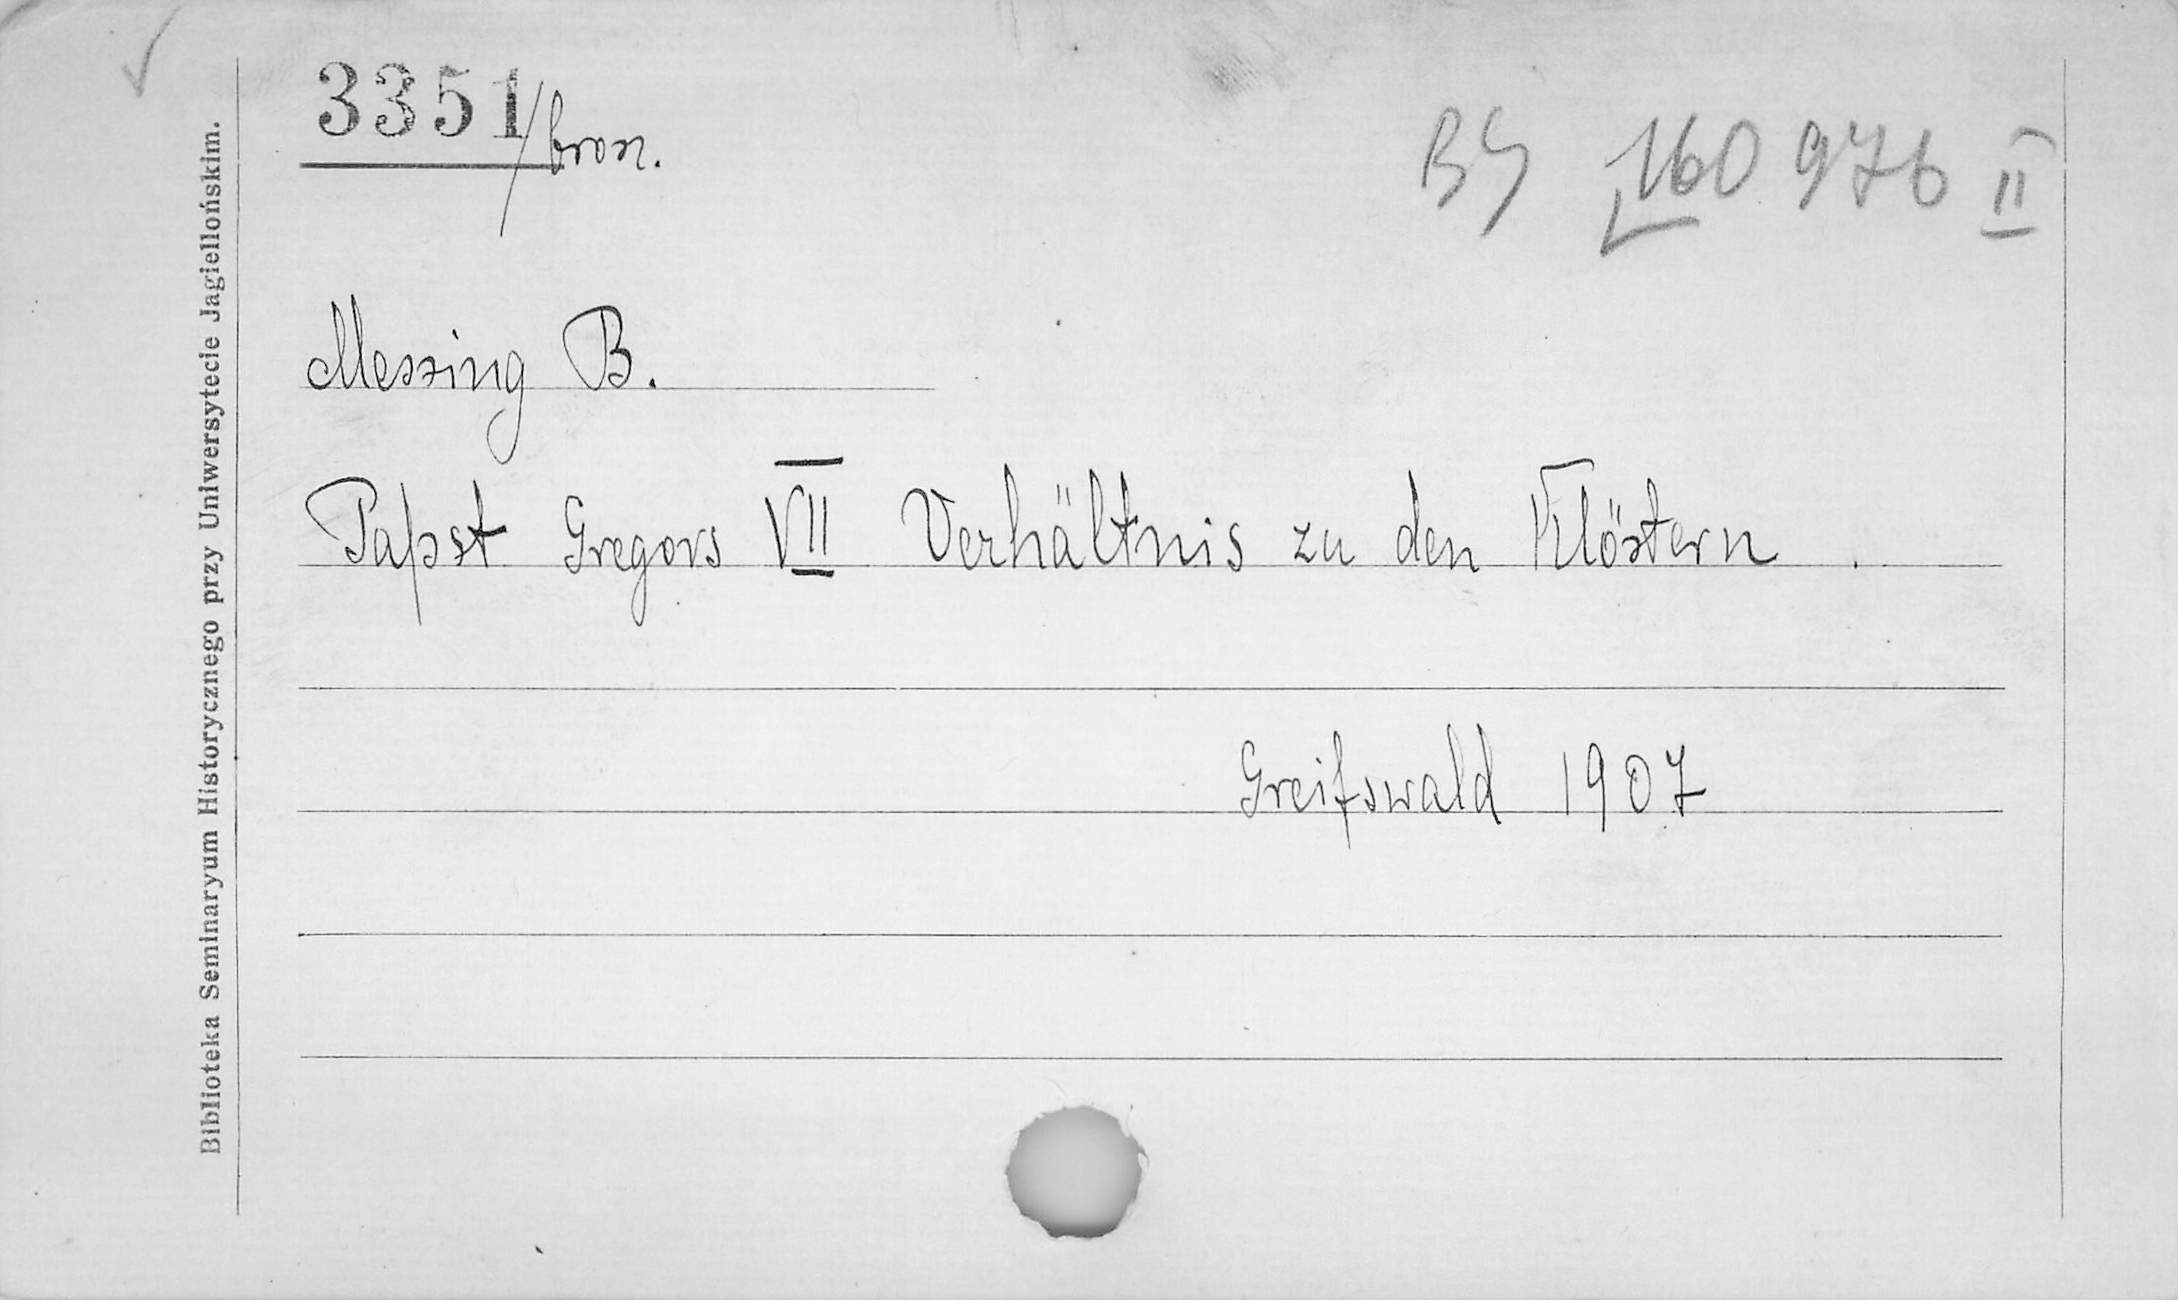 3351/bron.
BJ 160 976 II
Messing B.
Papst Gregors VII Verhältnis zu den Klöstern.
Greifswald 1907
Biblioteka Seminaryum Historycznego przy Uniwersytecie Jagiellońskim.